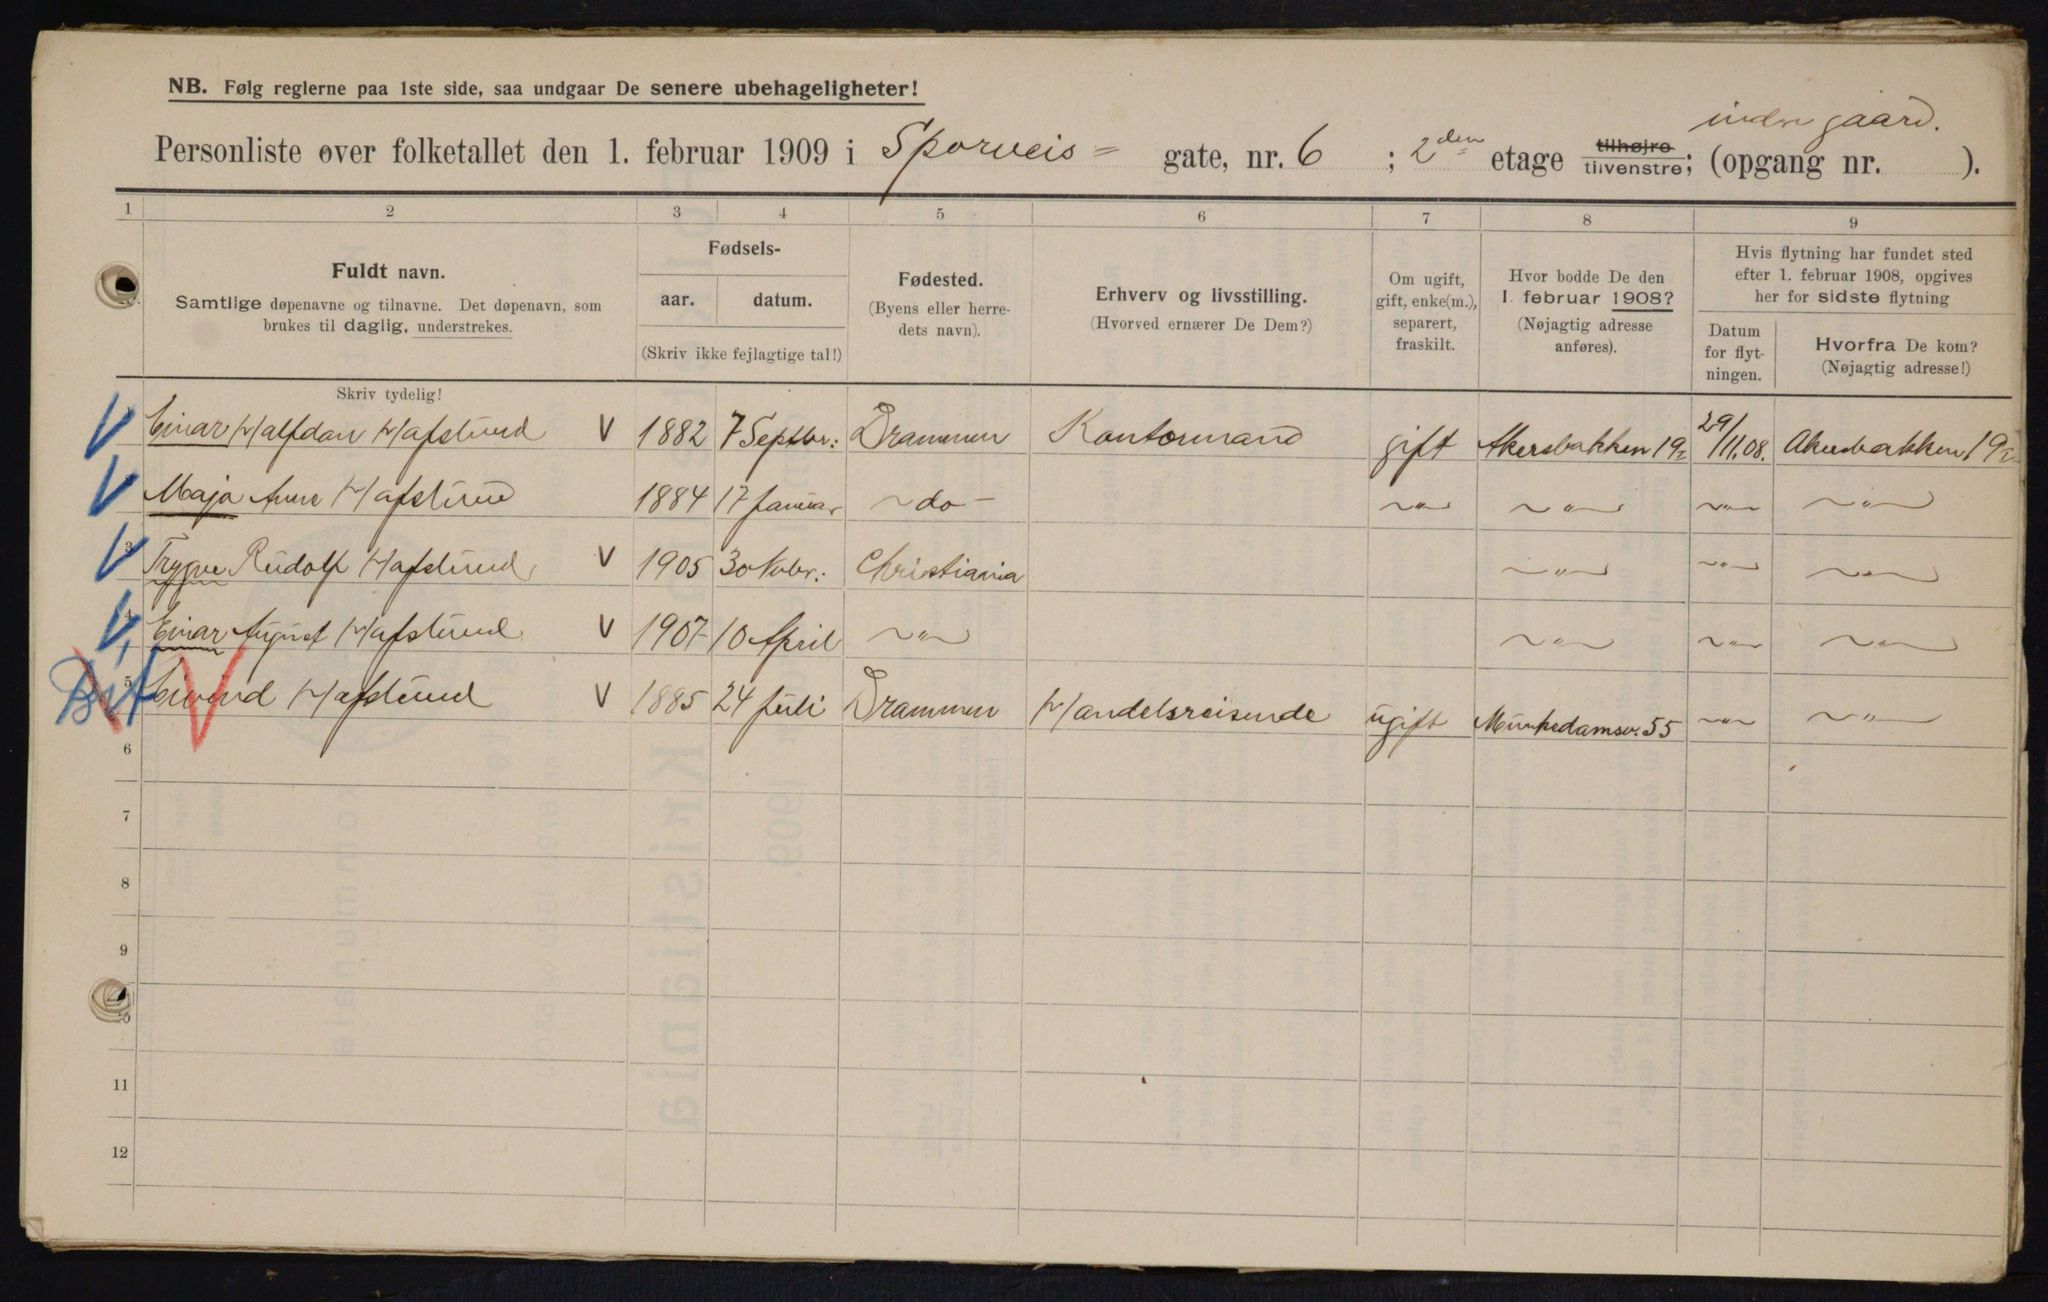 NB. Følg reglerne paa 1ste side, saa undgaar De senere ubehageligheter!
indre gaard.
Personliste over folketallet den 1. februar 1909 i Sporveis= gate, nr. 6 ; 2den etage tilhøjre tilvenstre; (opgang nr. ).
1 2 3 4 5 6 7 8 9
Fuldt navn.
Samtlige døpenavne og tilnavne. Det døpenavn, som
brukes til daglig, understrekes.
Skriv tydelig!
Fødsels-
aar. datum.
(Skriv ikke fejlagtige tal!)
Fødested.
(Byens eller herre-
dets navn).
Erhverv og livsstilling.
(Hvorved ernærer De Dem?)
Om ugift,
gift, enke(m.),
separert,
fraskilt.
Hvor bodde De den
1. februar 1908?
(Nøjagtig adresse
anføres).
Hvis flytning har fundet sted
efter 1. februar 1908, opgives
her for sidste flytning
Datum
for flyt-
ningen.
Hvorfra De kom?
(Nøjagtig adresse!)
V Einar Halfdan Hafslund V 1882 7 Septbr: Drammen Kontormand gift Akersbakken 19 29/11.08. Akersbakken 19
V Maja Hafslund 1884 17 Januar ~do- ~"~ ~"~ ~"~ ~"~
V 3 Trygve Rudolf Hafslund V 1905 30 Novbr: Christiania ~"~ ~"~ ~"~
V 4 Einar August Hafslund V 1907 10 April ~"~ ~"~ ~"~ ~"~
5 Eivind Hafslund V 1885 24 Juli Drammen Handelsreisende ugift Munkedamsv. 55 ~"~ ~"~
6
7
8
9
10
11
12